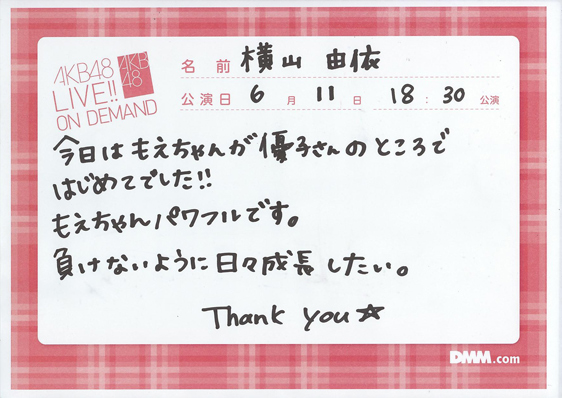 AKB48
LIVE!!
ON DEMAND
AKB
48
名前 横山 由依
公演日 6月 11日 18:30 公演
今日はもえちゃんが優子さんのところで
はじめてでした!!
もえちゃんパワフルです。
負けないように日々成長したい。
Thank you☆
DMM.com